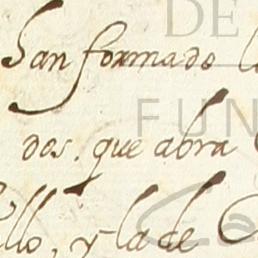 DE
san formado
FUN
dos. que abra
llo, y la de